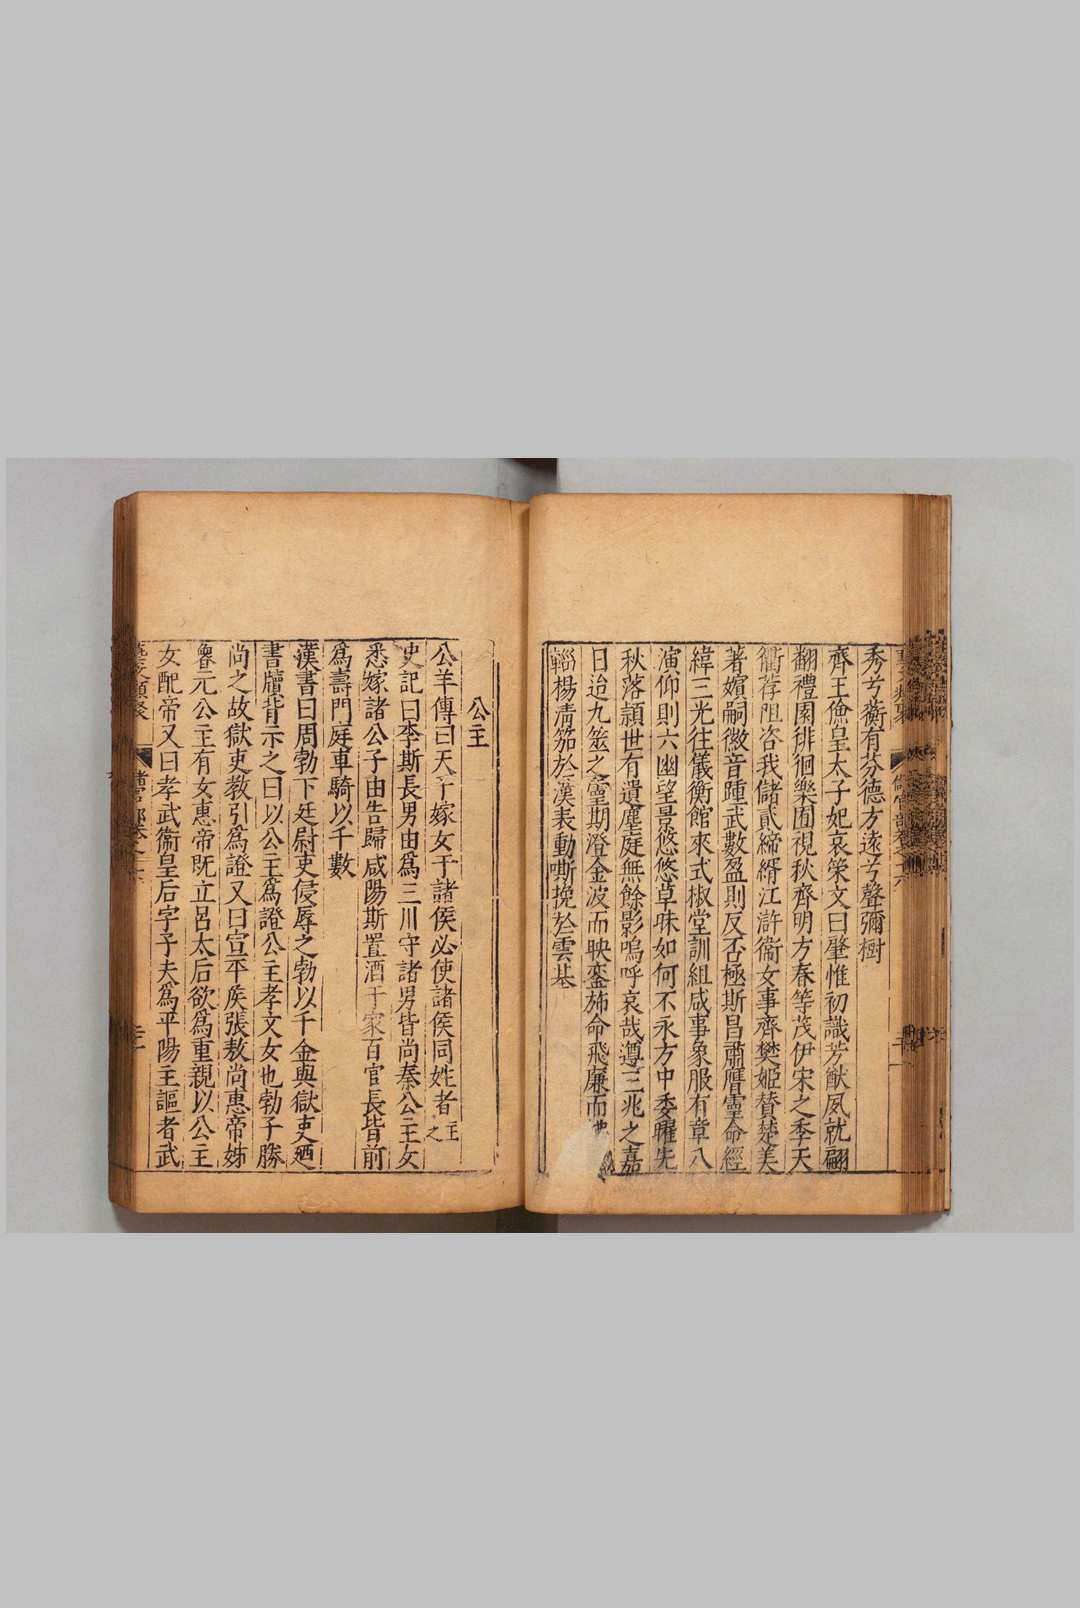 秀兮蘅有芬德方遠兮聲彌樹
齊王儉皇太子妃哀策文曰肇惟初識芳猷夙就翩
翻禮園徘徊樂囿視秋齊明方春等茂伊宋之季天
衢荐阻咨我儲貳締緡江滸衞女事齊樊姬賛楚美
著嬪嗣徽音踵武數盈則反否極斯昌肅膺霊命經
緯三光往儀衡館來式椒堂訓組咸事象服有章八
演仰則六幽望景悠悠卓昧如何不永方中委曜先
秋落頴世有遺塵庭無餘影嗚呼哀哉遵三兆之嘉
日迨九筮之霊期澄金波而映鸞斾命飛廉而
輜楊清笳於漢表動嘶挽於雲基
公主
公羊傳曰天子嫁女于諸侯必使諸侯同姓者主之
史記曰李斯長男由爲三川守諸男皆尚秦公主女
悉嫁諸公子由告歸咸陽斯置酒于家百官長皆前
爲壽門庭車騎以千數
漢書曰周勃下廷尉吏侵辱之勃以千金與獄吏廼
書牘背示之曰以公主爲證公主孝文女也勃子勝
尚之故獄吏教引爲證又曰宣平侯張敖尚惠帝姊
魯元公主有女惠帝既立呂太后欲爲重親以公主
女配帝又曰孝武衞皇后字子夫爲平陽主謳者武